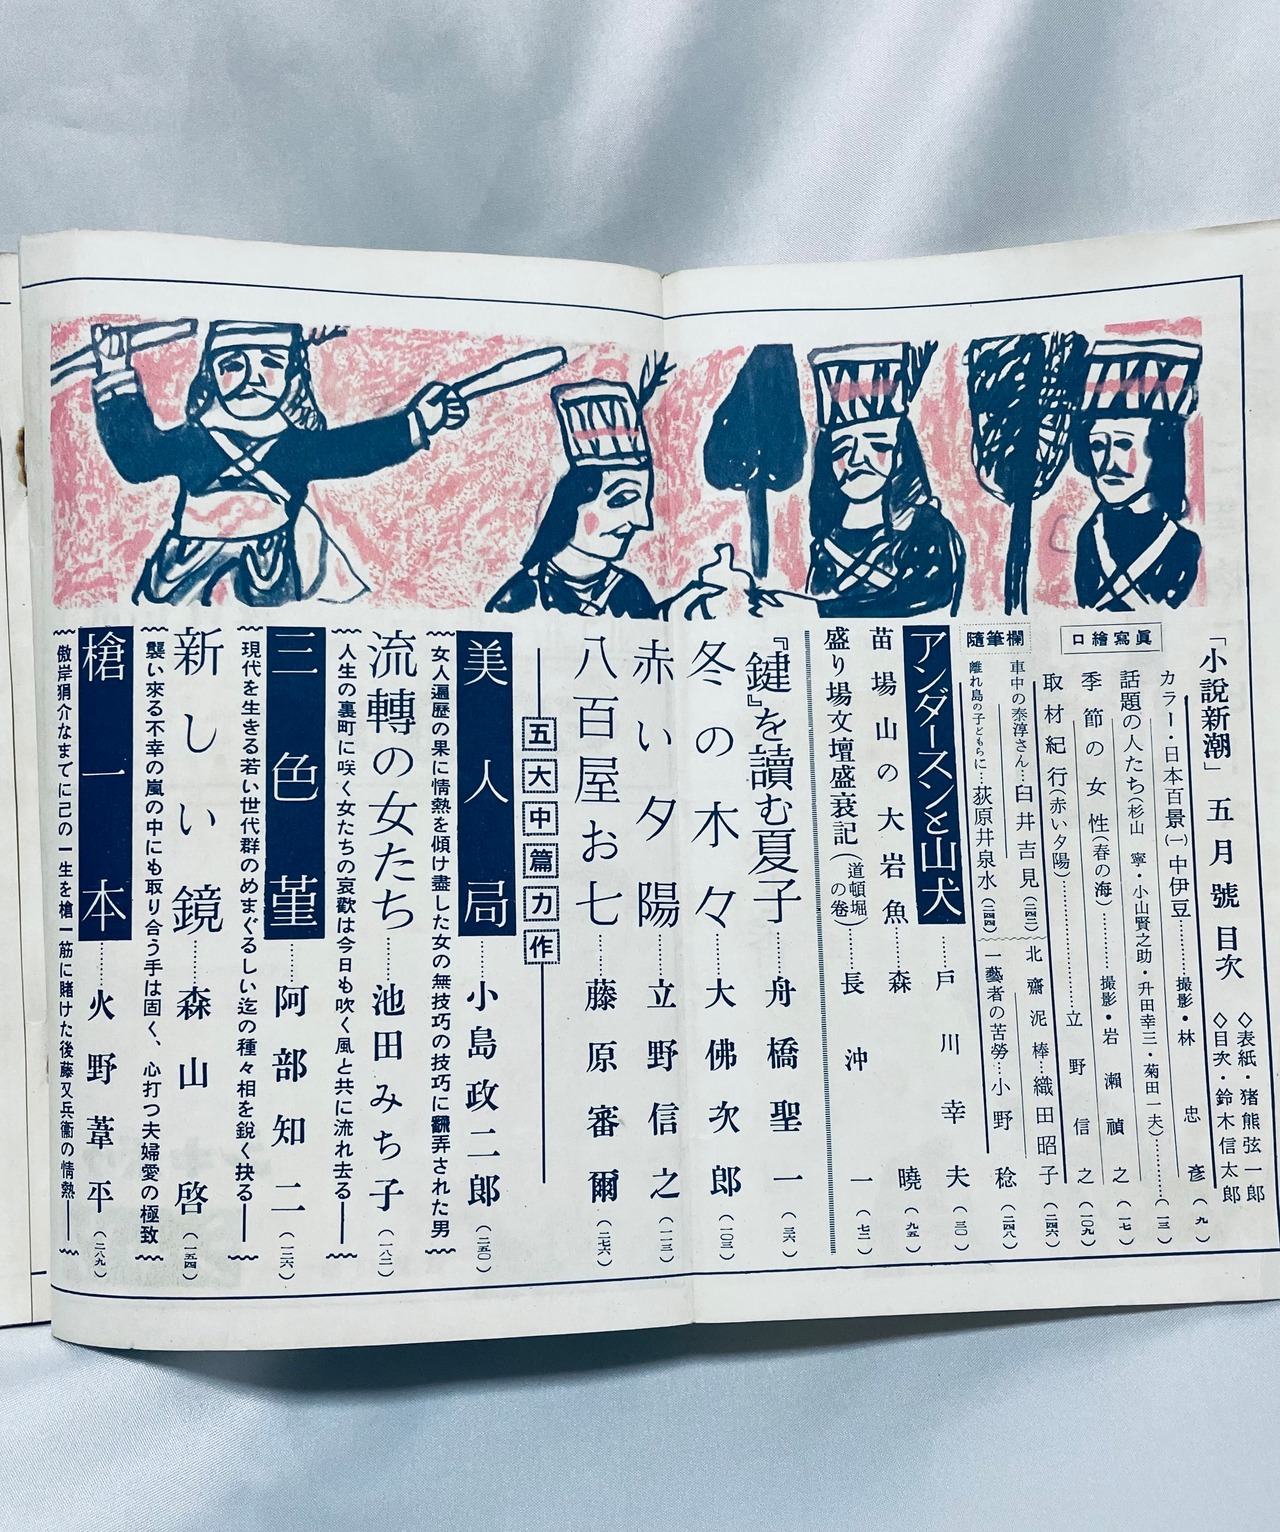 「小說新潮」五月號目次
◇表紙・猪熊弦一郎
◇目次・鈴木信太郎
口繪寫眞
カラー・日本百景(一)中伊豆……撮影・林忠彦(九)
話題の人たち(杉山寧・小山賢之助・升田幸三・菊田一夫)……(一三)
季節の女性(春の海)……撮影・岩瀨禎之(一七)
取材紀行(赤い夕陽)……立野信之(一〇九)
隨筆欄
車中の泰淳さん…臼井吉見(二四二)
北齋泥棒…織田昭子(二四六)
離れ島の子どもらに…荻原井泉水(二四四)
一藝者の苦勞…小野稔(二四八)
アンダースンと山犬……戶川幸夫(三〇)
苗場山の大岩魚……森曉(九五)
盛り場文壇盛衰記(道頓堀の卷)……長沖一(七二)
『鍵』を讀む夏子……舟橋聖一(三六)
冬の木々……大佛次郎(一〇三)
赤い夕陽……立野信之(一一三)
八百屋お七……藤原審爾(二七六)
五大中篇力作
美人局……小島政二郎(二五〇)
女人遍歷の果に情熱を傾け盡した女の無技巧の技巧に飜弄された男
流轉の女たち……池田みち子(一八二)
人生の裏町に咲く女たちの哀歡は今日も吹く風と共に流れ去る——
三色菫……阿部知二(一二六)
現代を生きる若い世代群のめまぐるしい迄の種々相を鋭く抉る——
新しい鏡……森山啓(一五四)
襲い來る不幸の嵐の中にも取り合う手は固く、心打つ夫婦愛の極致
槍一本……火野葦平(二八九)
傲岸狷介なまでに己の一生を槍一筋に賭けた後藤又兵衞の情熱——